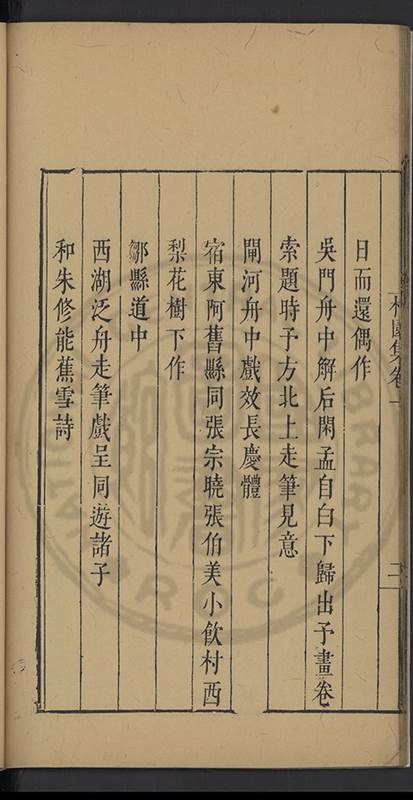 日而還偶作
吳門舟中解后閑孟自白下歸出予畫卷
索題時予方北上走筆見意
閘河舟中戲效長慶體
宿東阿舊縣同張宗曉張伯美小飲村西
梨花樹下作
鄒縣道中
西湖泛舟走筆戲呈同遊諸子
和朱修能蕉雪詩